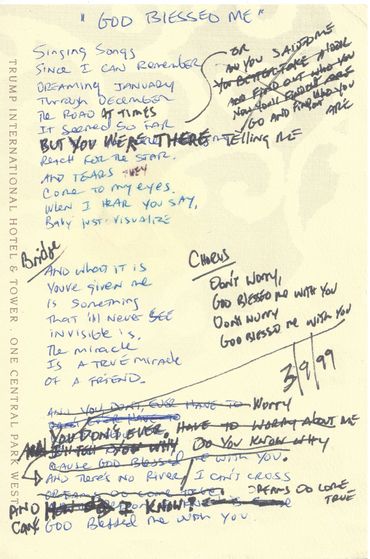 "GOD BLESSED ME"
Singing Songs
Since I can Remember
DREAMING JANUARY
Through DECEMBER
The ROAD AT TIMES
IT SEEMED SO FAR
BUT YOU WERE THERE TELLING ME
REACH FOR THE STAR.
AND TEARS THEY
COME TO MY EYES.
WHEN I HEAR YOU SAY,
BABY JUST VISUALIZE
OR
AN YOU SAID TO ME
YOU BETTER TAKE A LOOK
AND FIND OUT WHO YOU
GO AND FIND OUT WHO YOU ARE
Bridge
AND WHAT IT IS
YOUVE GIVEN ME
IS SOMETHING
THAT I'll NEVER SEE
INVISIBLE IS.
The MIRACLE
IS A TRUE MIRACLE
OF A FRIEND.
CHORUS
DON'T WORRY,
GOD BLESSED ME WITH YOU
DON'T WORRY
GOD BLESSED ME WITH YOU
3/9/99
AND YOU DON'T EVER HAVE TO WORRY
YOU DON'T EVER. HAVE TO WORRY ABOUT ME
TELL YOU WHY DO YOU KNOW WHY
CAUSE GOD BLESSED ME WITH YOU.
AND THERE'S NO RIVER I CAN'T CROSS
DREAMS DO COME TRUE
AND I KNOW
CAUSE GOD BLESSED ME WITH YOU
TRUMP INTERNATIONAL HOTEL & TOWER . ONE CENTRAL PARK WEST